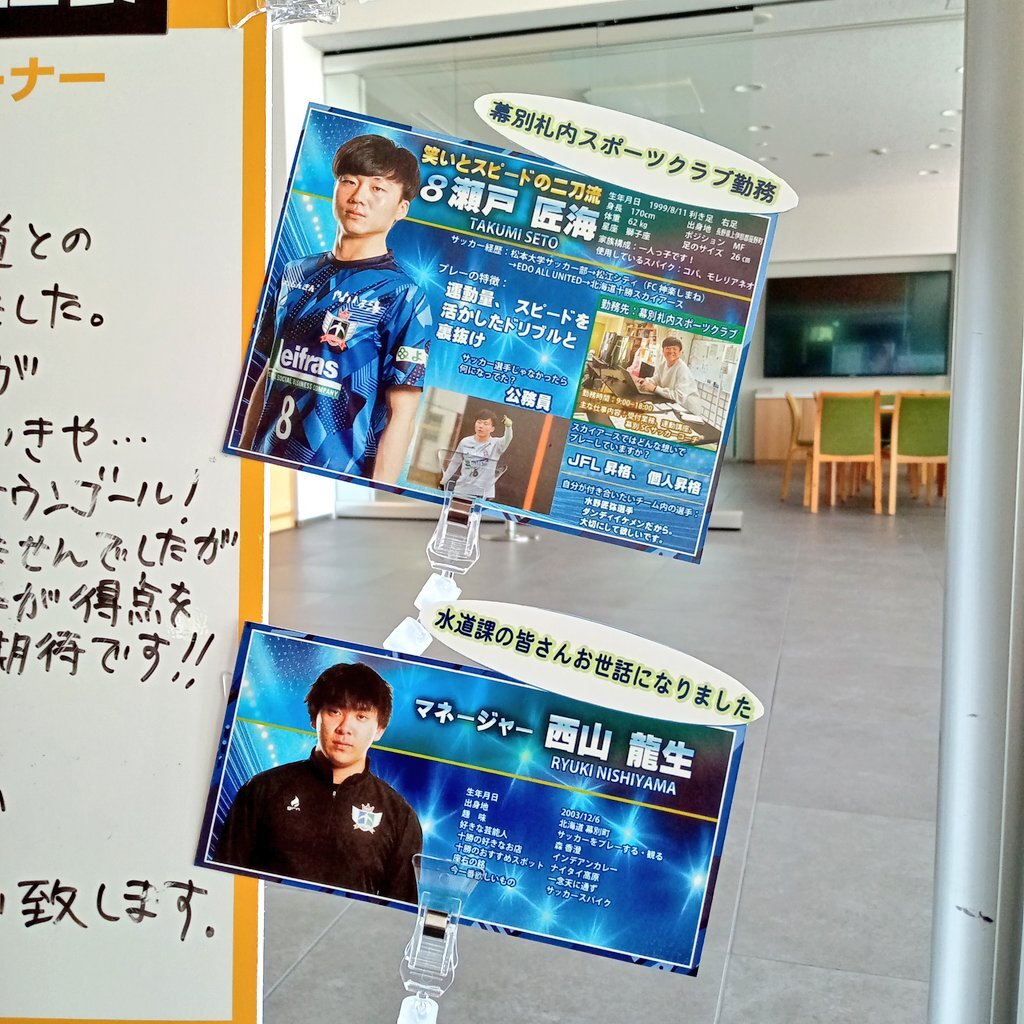 ーナー
道との
ました。
が
いきや…
オウンゴール!
ませんでしたが
が得点を
期待です!!
い致します。
幕別札内スポーツクラブ勤務
笑いとスピードの二刀流
8 瀬戸 匠海
TAKUMI SETO
生年月日 1999/8/11 利き足 右足
身長 170cm 出身地 長野県上伊那郡飯島町
体重 62kg ポジション MF
星座 獅子座 足のサイズ 26cm
家族構成:一人っ子です!
使用しているスパイク:コパ、モレリアネオ
サッカー経歴:松本大学サッカー部→松江シティ(FC神楽しまね)
→EDO ALL UNITED→北海道十勝スカイアース
プレーの特徴:
運動量、スピードを
活かしたドリブルと
裏抜け
サッカー選手じゃなかったら
何になってた?
公務員
勤務先:幕別札内スポーツクラブ
勤務時間:9:00~18:00
主な仕事内容:受付業務、運動講座、
幕別SCサッカーコーチ
スカイアースではどんな想いで
プレーしていますか?
JFL昇格、個人昇格
自分が付き合いたいチーム内の選手:
水野匠弥選手
ダンディイケメンだから。
大切にして欲しいです。
leifras
SOCIAL BUSINESS COMPANY
8
よ
水道課の皆さんお世話になりました
マネージャー 西山 龍生
RYUKI NISHIYAMA
生年月日 2003/12/6
出身地 北海道 幕別町
趣 味 サッカーをプレーする・観る
好きな芸能人 森 香澄
十勝の好きなお店 インデアンカレー
十勝のおすすめスポット ナイタイ高原
座右の銘 一念天に通ず
今一番欲しいもの サッカースパイク